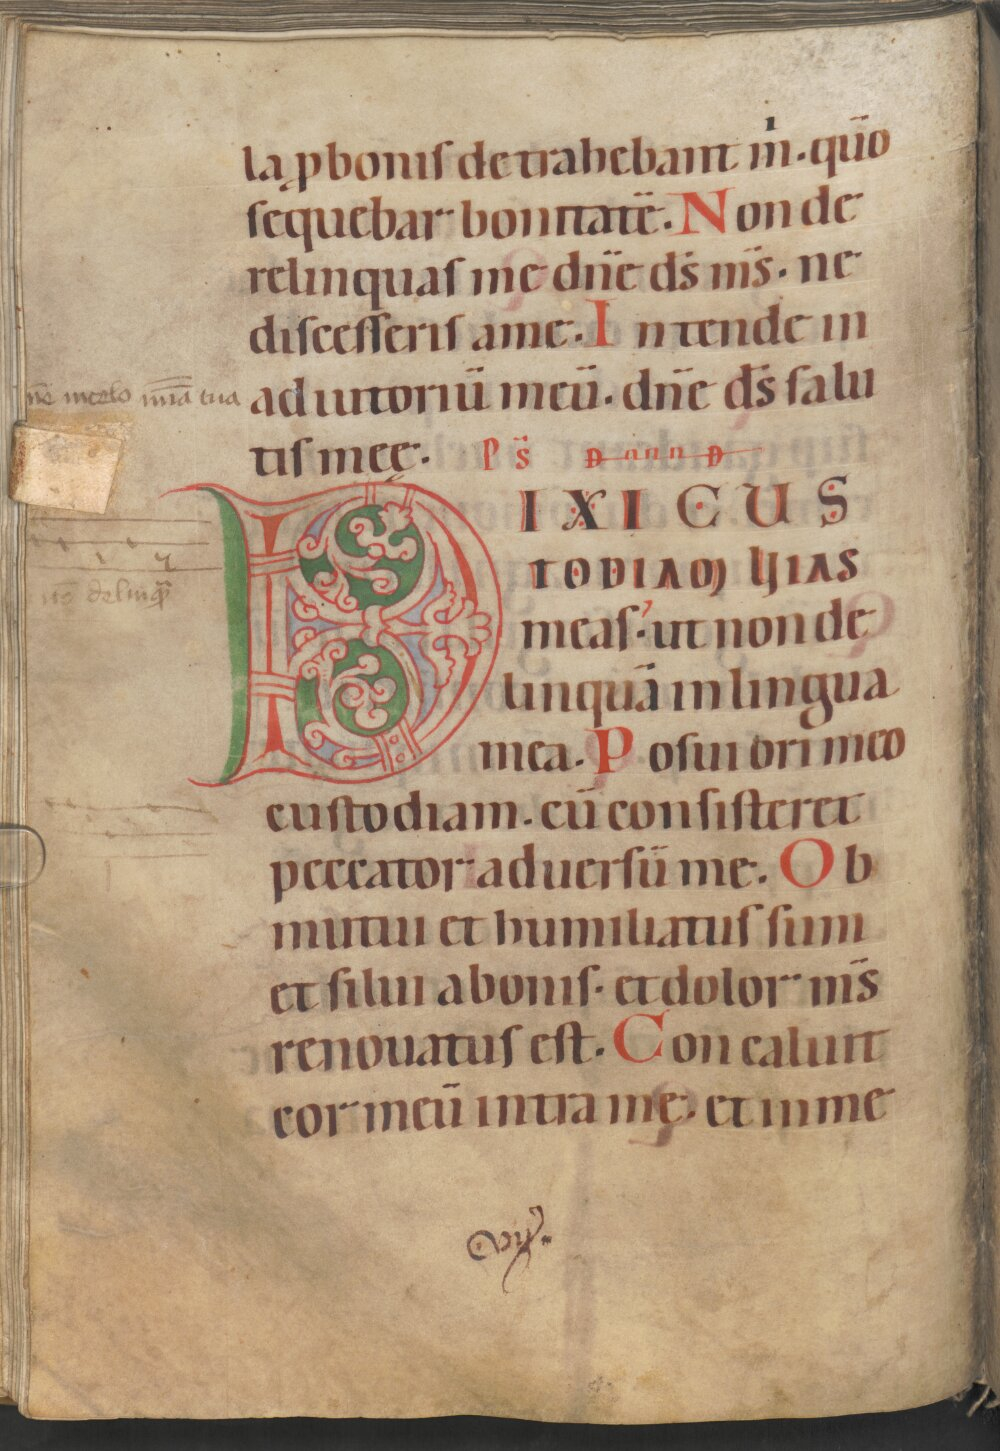 la ꝓbonis detrahebant m̄i. qūo
sequebar bonitatē. Non de
relinquas me dn̄e ds̄ ms̄. ne
discesseris ame. Intende in
nē in celo mīa tua
adiutoriū meū. dn̄e ds̄ salu
tis meę. Ps̄
DIXI CUS
TODIAM VIAS
nō delinq̄
meas. ut non de
linquā in lingua
mea. Posui ori meo
custodiam. cū consisteret
peccator aduersū me. Ob
mutui et humiliatus sum
et silui abonis. et dolor ms̄
renouatus est. Concaluit
cor meū intra me. et inme